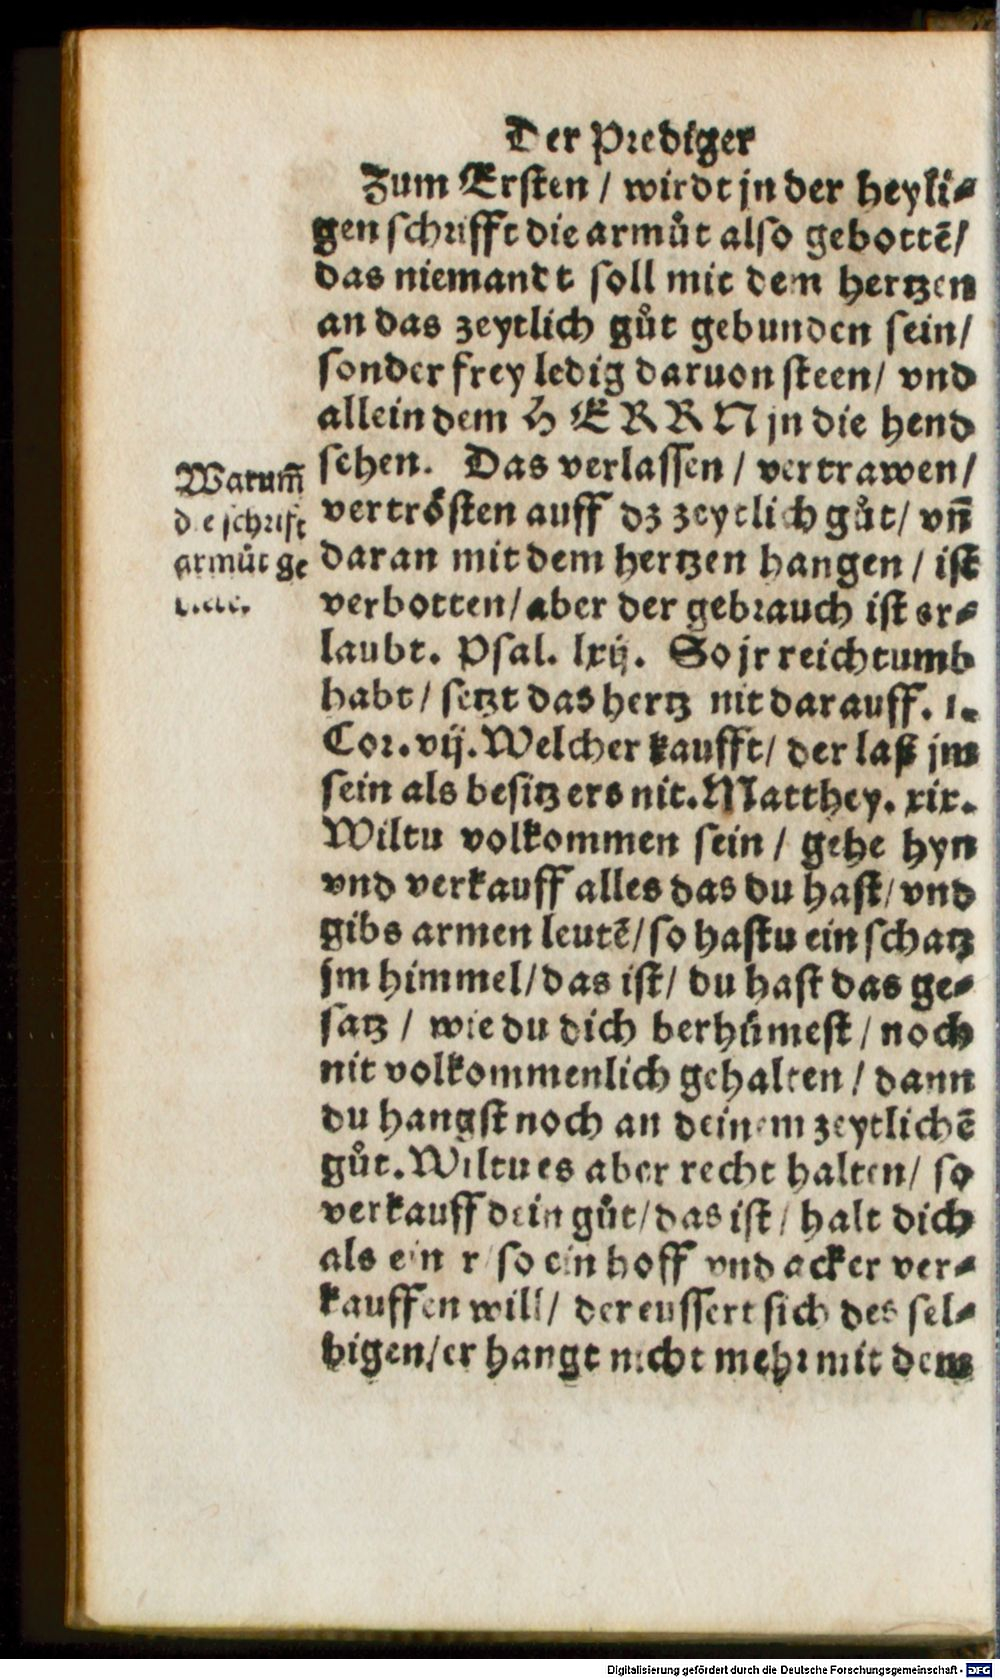 Der Prediger
Zum Ersten / wirdt jn der heyli-
gen schrifft die armůt also gebottē/
das niemandt soll mit dem hertzen
an das zeytlich gůt gebunden sein/
sonder frey ledig daruon steen/ vnd
allein dem HERRN jn die hend
sehen. Das verlassen / vertrawen/
vertrösten auff dz zeytlich gůt/ vñ
daran mit dem hertzen hangen / ist
verbotten/ aber der gebrauch ist er-
laubt. Psal. lxij. So jr reichtumb
habt / setzt das hertz nit darauff. 1.
Cor. vij. Welcher kaufft/ der laß jm
sein als besitz ers nit. Matthey. xix.
Wiltu volkommen sein / gehe hyn
vnd verkauff alles das du hast/ vnd
gibs armen leutē/ so hastu ein schatz
jm himmel/ das ist/ du hast das ge-
satz / wie du dich berhümest / noch
nit volkommenlich gehalten / dann
du hangst noch an deinem zeytlichē
gůt. Wiltu es aber recht halten/ so
verkauff dein gůt/ das ist / halt dich
als einer / so ein hoff vnd acker ver-
kauffen will/ der eussert sich des sel-
bigen/ er hangt nicht mehr mit dem
Warum̃
die schrift
armůt ge
biete.
Digitalisierung gefördert durch die Deutsche Forschungsgemeinschaft - DFG